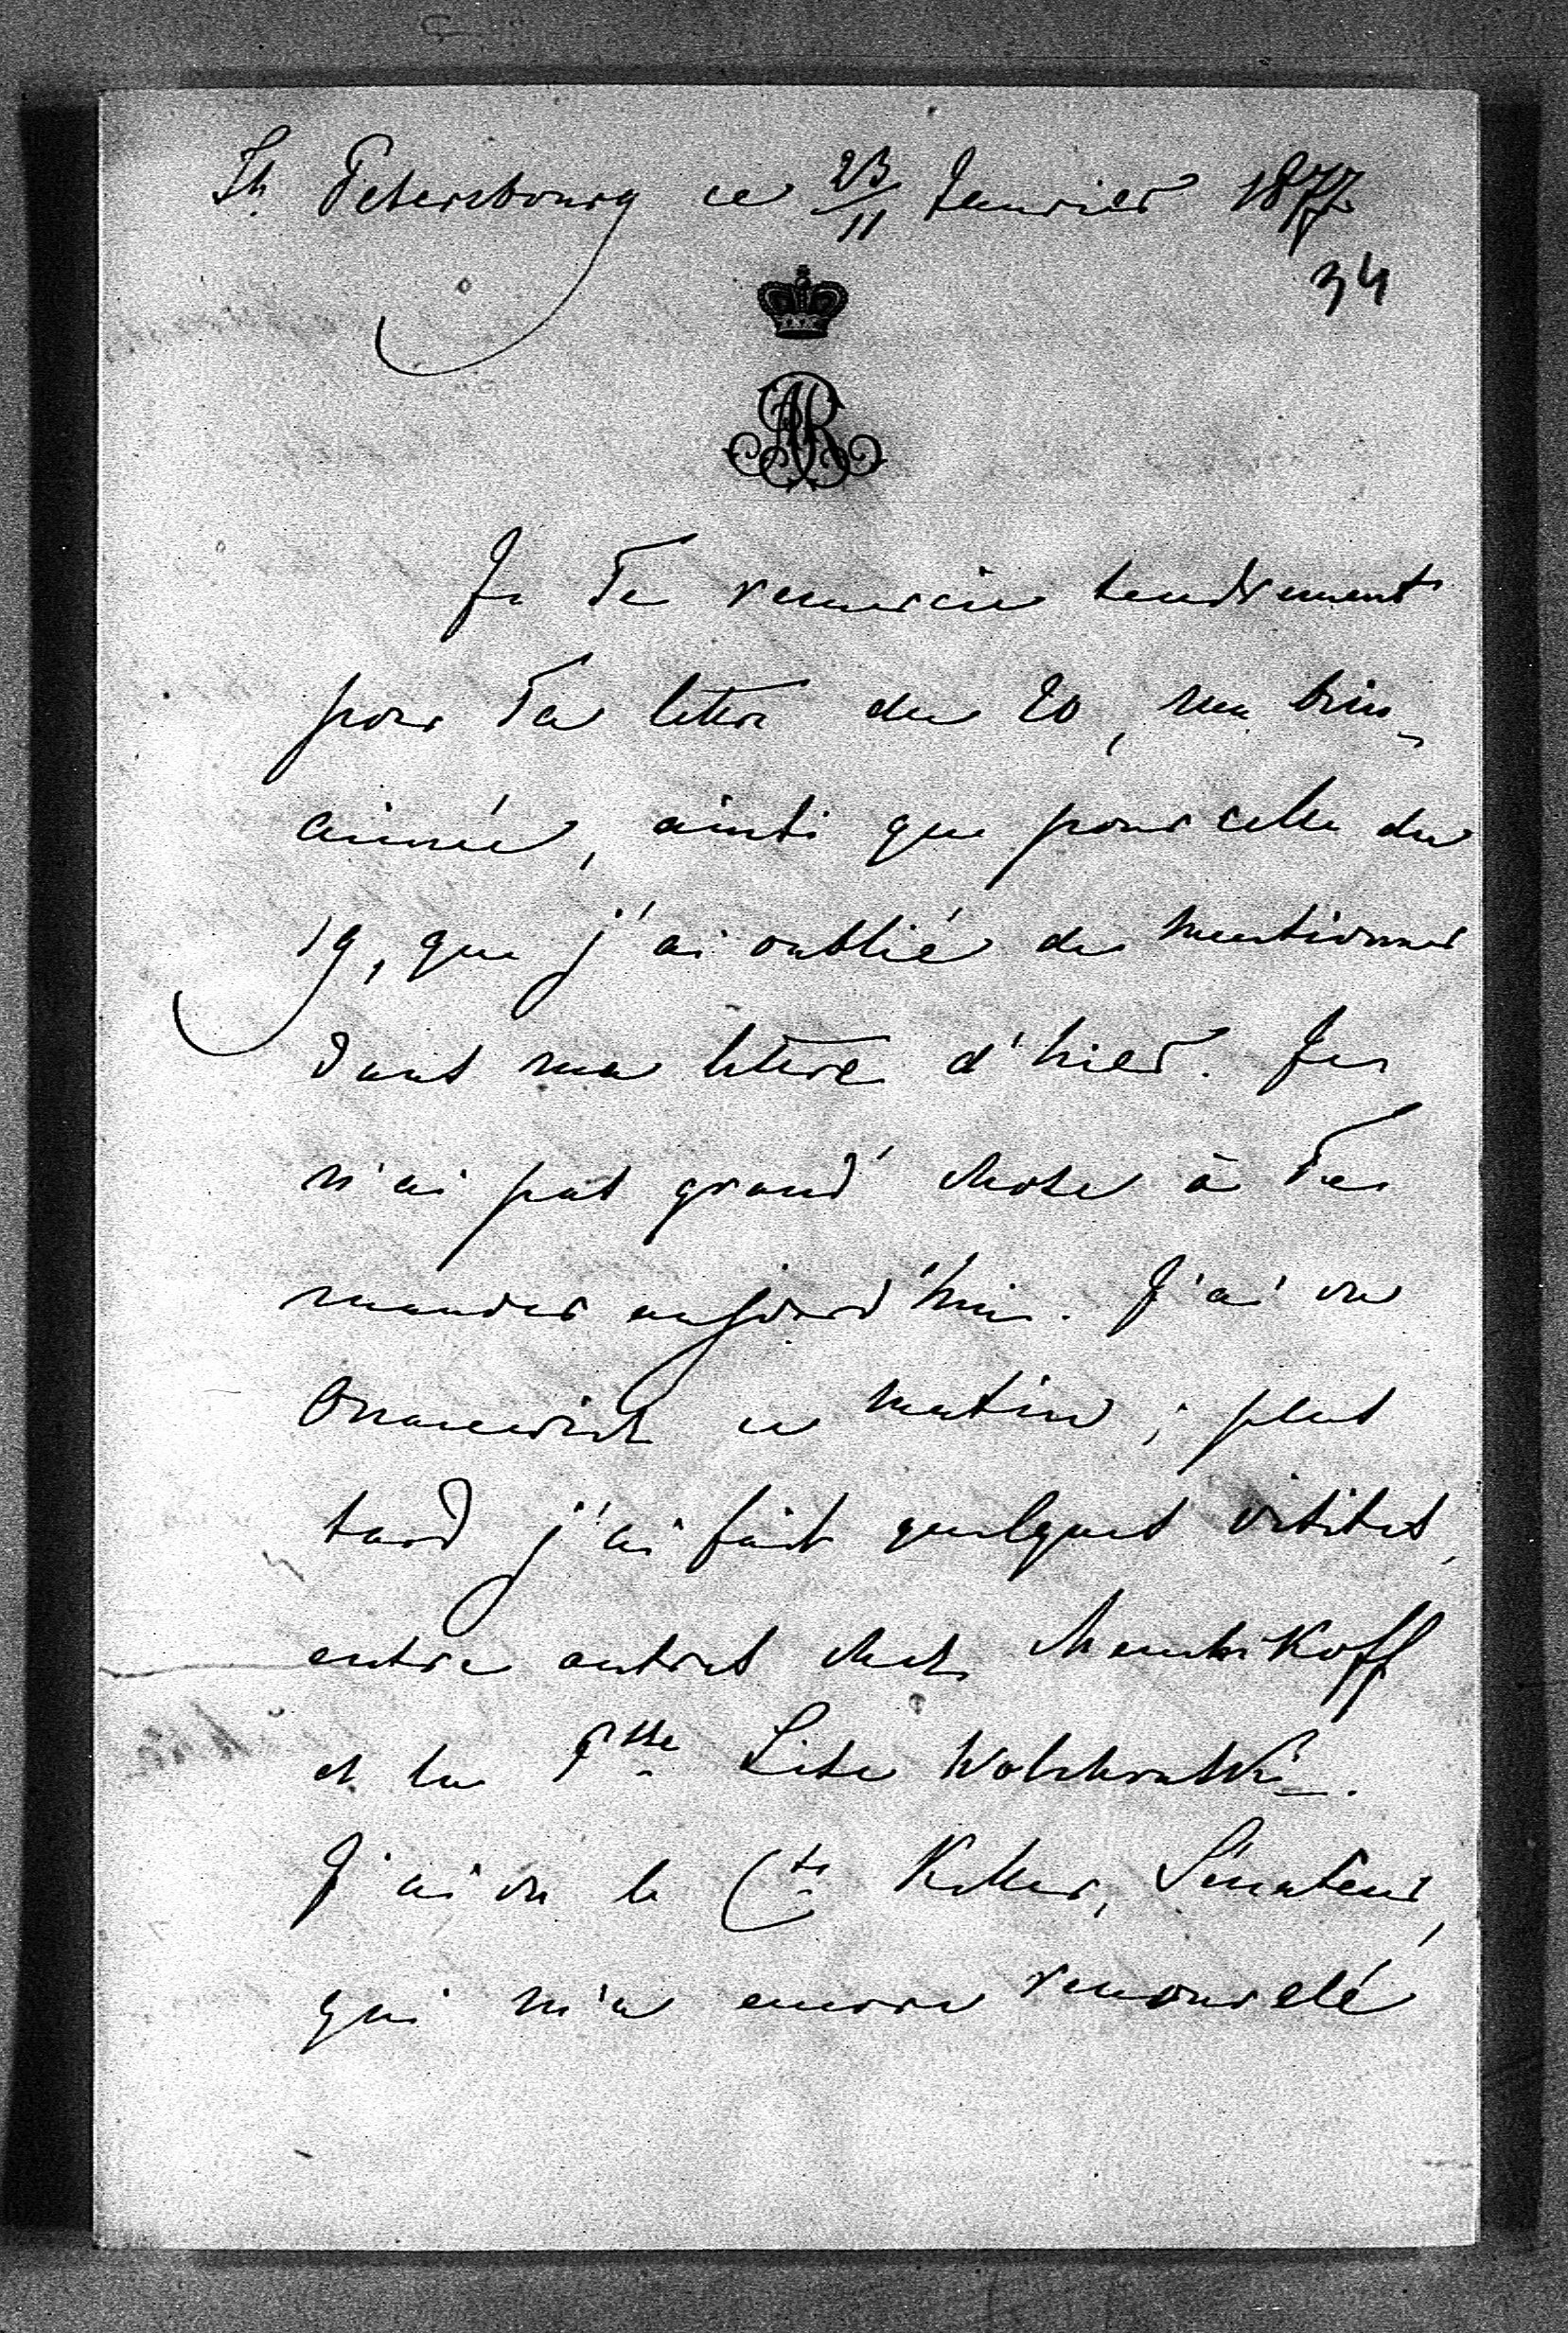 St. Petersbourg ce 23/11 Janvier 1877
34
AR
Je Te remercie tendrement
pour Ta lettre du 20, ma bien-
aimée, ainsi que pour celle du
19, que j'ai oublié de mentionner
dans ma lettre d'hier. Je
n'ai pas grand' chose à Te
mander aujourd'hui. J'ai vu
ce matin; plus
tard j'ai fait quelques visites,
entre autres chez Menshikoff
et la Psse Lise Wolchonski.
J'ai vu le Cte Keller, Sénateur,
qui m'a encore renouvelé